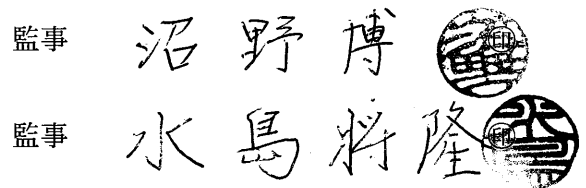 監事 沼野博 ㊞
監事 水島将隆 ㊞